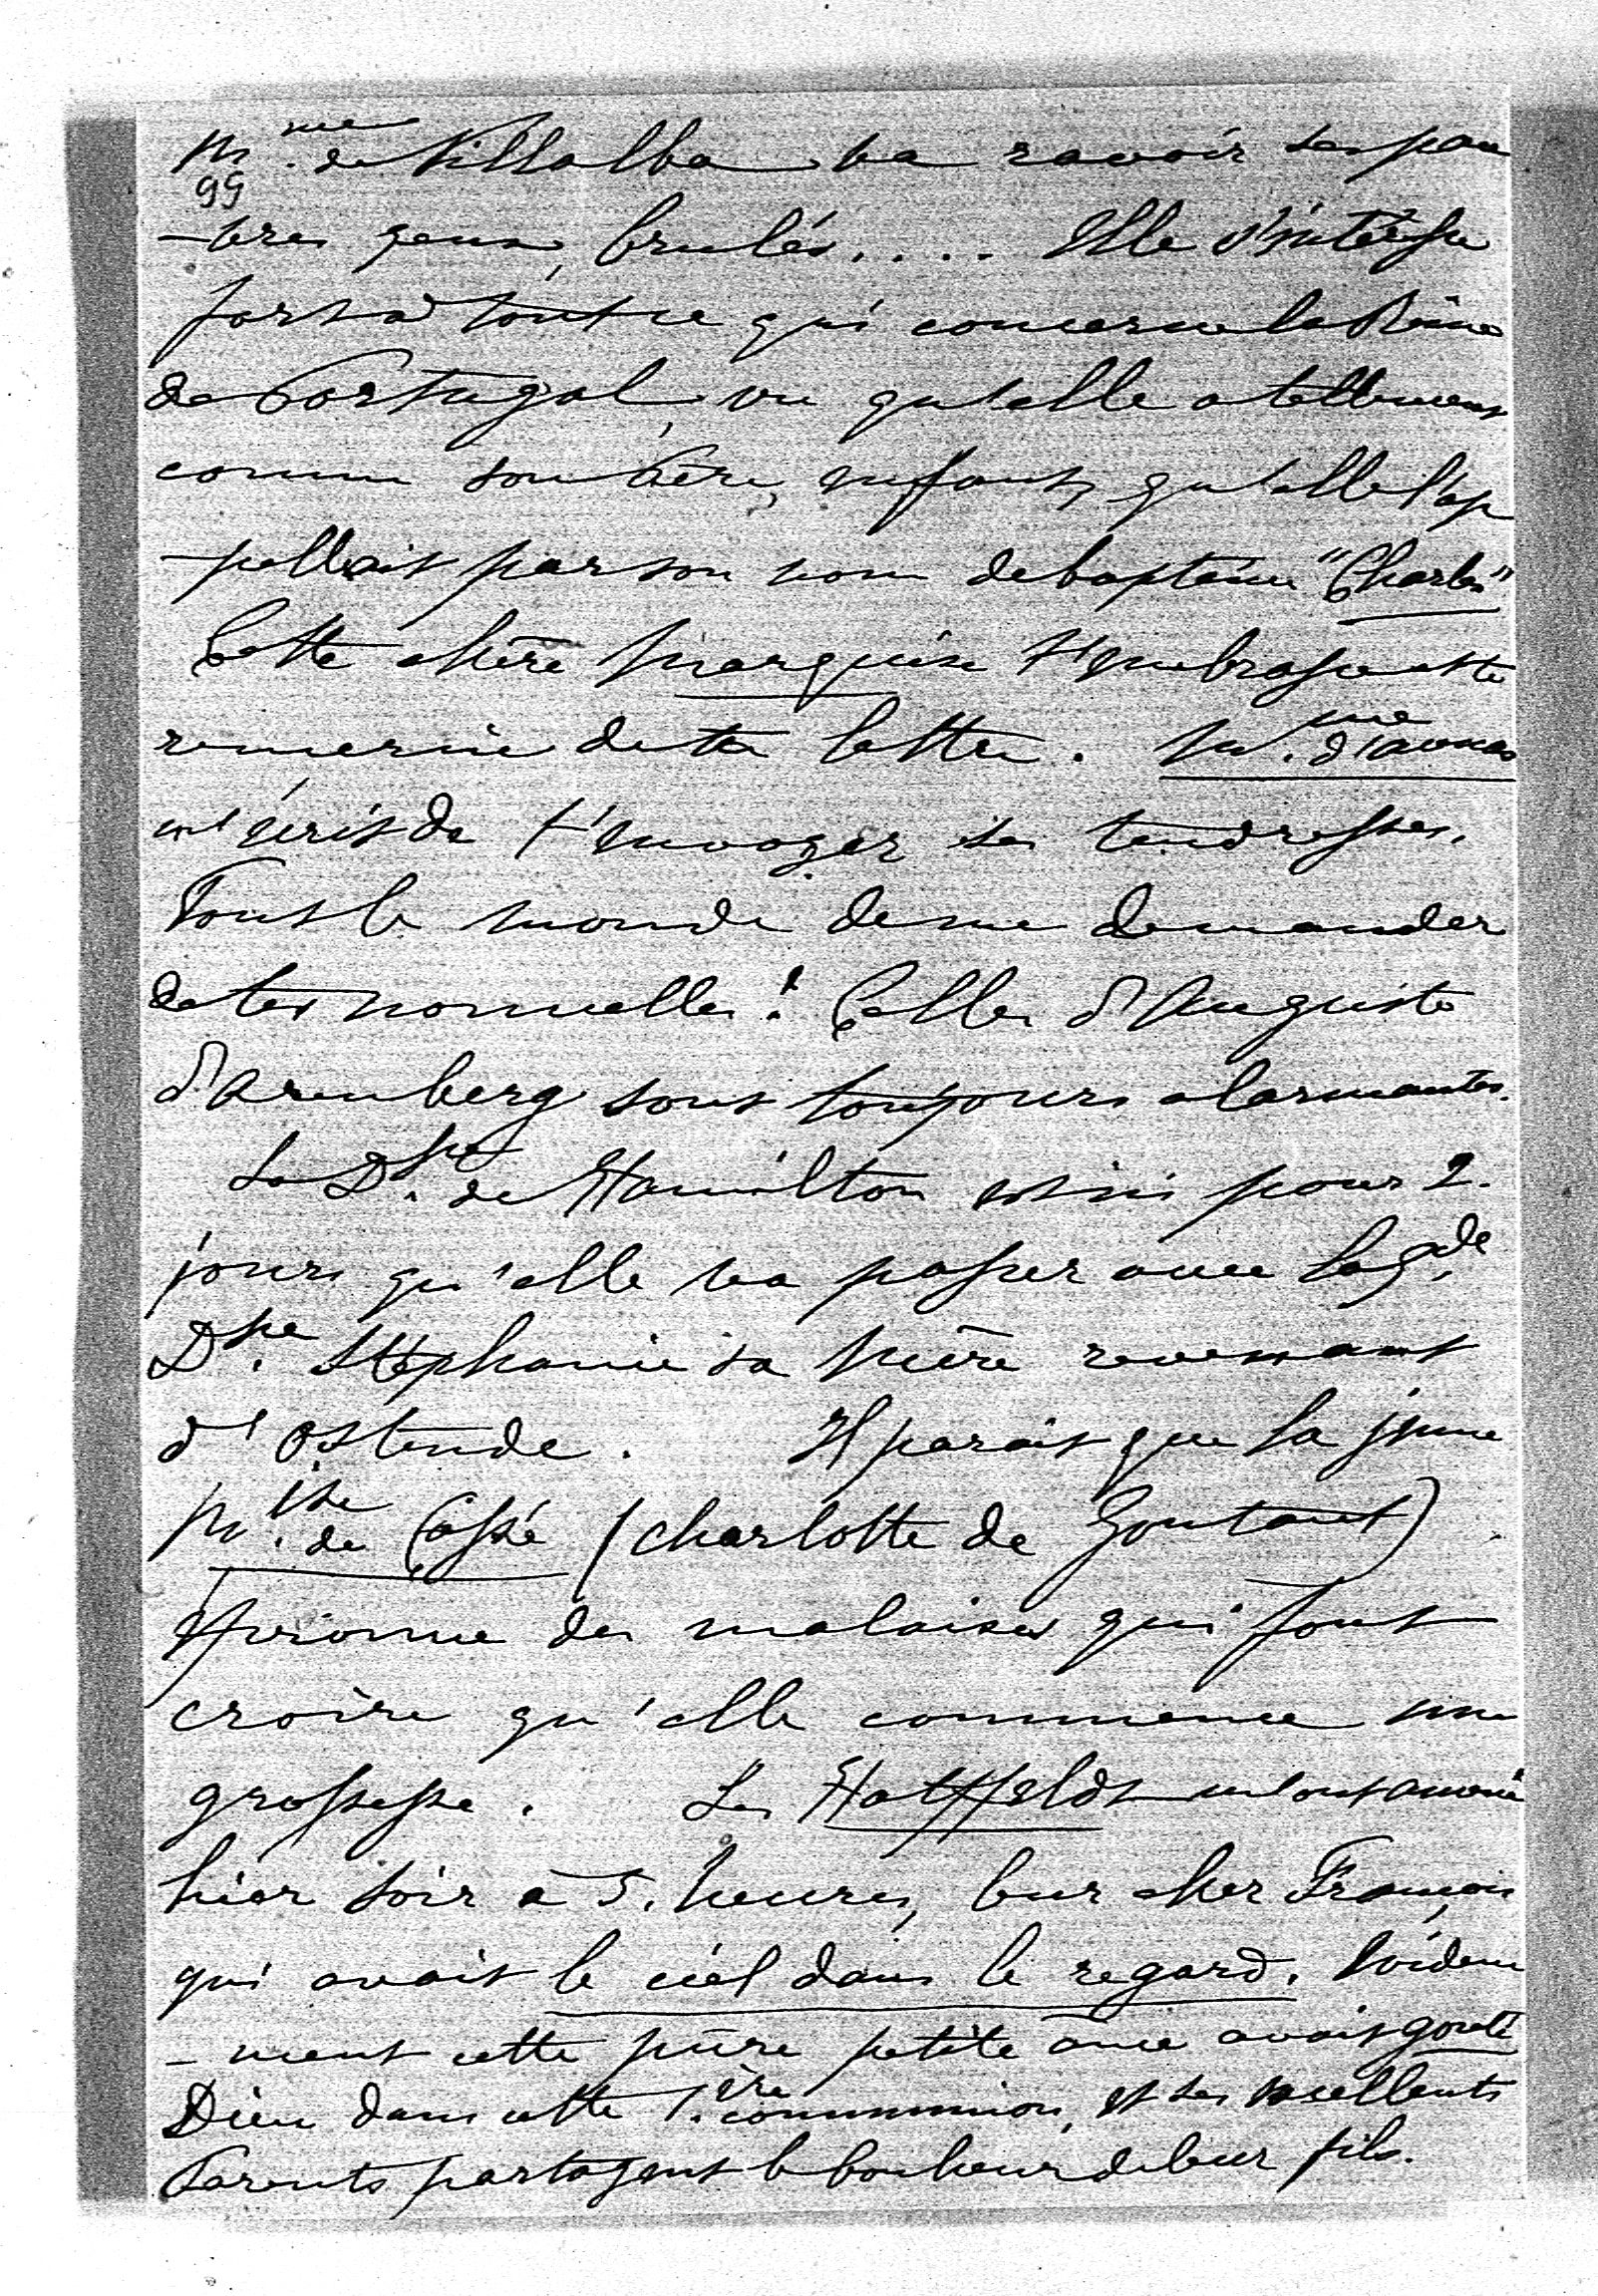 M.me de Villalba va ravoir ses pau
99
-vres gens, brulés.... Elle s'intéresse
fort à tout ce qui concerne la Reine
de Portugal, vu qu'elle a tellement
connu son Père, enfant, qu'elle l'ap
-pellait par son nom de baptême "Charles"
Cette chère Marquise t'embrasse et te
remercie de ta lettre. M.me d'
m'écrit de t'envoyer ses tendresses.
Tout le monde de me demander
de tes nouvelles! Celles d'Auguste
d'Arenberg sont toujours alarmantes.
La D.sse de Hamilton est ici pour 2.
jours qu'elle va passer avec la G.de
D.sse Stéphanie sa Mère revenant
d'Ostende. Il parait que la jeune
M.ise de Cossé (Charlotte de Gontaut)
éprouve des malaises qui font
croire qu'elle commence une
grossesse. Les Hatzfeldt m'ont amené
hier soir à 5. heures, leur cher François
qui avait le ciel dans le regard. Evidem
-ment cette pure petite âme avait gouté
Dieu dans cette 1.ère communion, et ses excellents
Parents partagent le bonheur de leur fils.